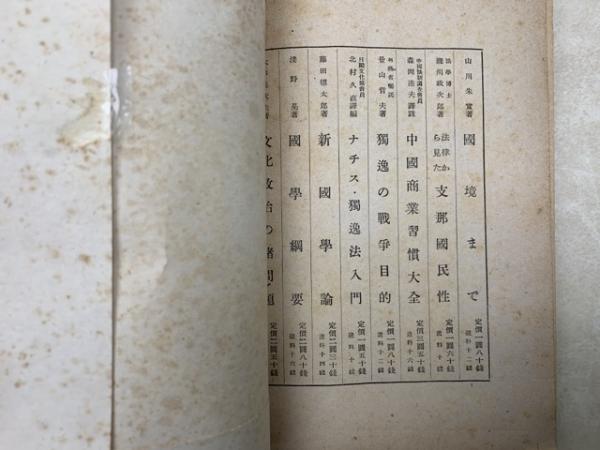 山川朱實著 國境まで 定價一圓八十錢 送料十二錢
法學博士 瀧川政次郎著 法律から見た 支那國民性 定價一圓六十錢 送料十錢
中國法制調査會員 森岡達夫譯註 中國商業習慣大全 定價三圓五十錢 送料十六錢
外務省囑託 景山哲夫著 獨逸の戰爭目的 定價一圓八十錢 送料十二錢
日獨文化協會員 北村久直譯編 ナチス・獨逸法入門 定價一圓五十錢 送料十錢
藤田德太郎著 新國學論 定價二圓三十錢 送料十四錢
淺野晃著 國學綱要 定價二圓八十錢 送料十六錢
文化政治の諸問題 定價二圓五十錢 送料十四錢